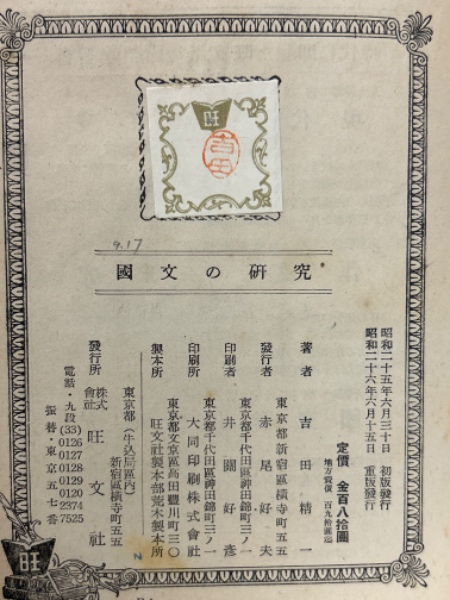 旺
吉田
9.17
國文の硏究
昭和二十五年六月三十日 初版發行
昭和二十六年六月十五日 重版發行
定價 金百八拾圓
地方賣價 百九拾圓
著者 吉田精一
東京都新宿區橫寺町五五
發行者 赤尾好夫
東京都千代田區神田錦町三ノ一
印刷者 井關好彥
東京都千代田區神田錦町三ノ一
印刷所 大同印刷株式會社
東京都文京區高田豐川町三〇
製本所 旺文社製本部荒木製本所
東京都(牛込局區內)
新宿區橫寺町五五
發行所 株式會社 旺文社
電話・九段(33)0126 0127 0128 0129 0120 2374 7525
振替・東京五七番
旺